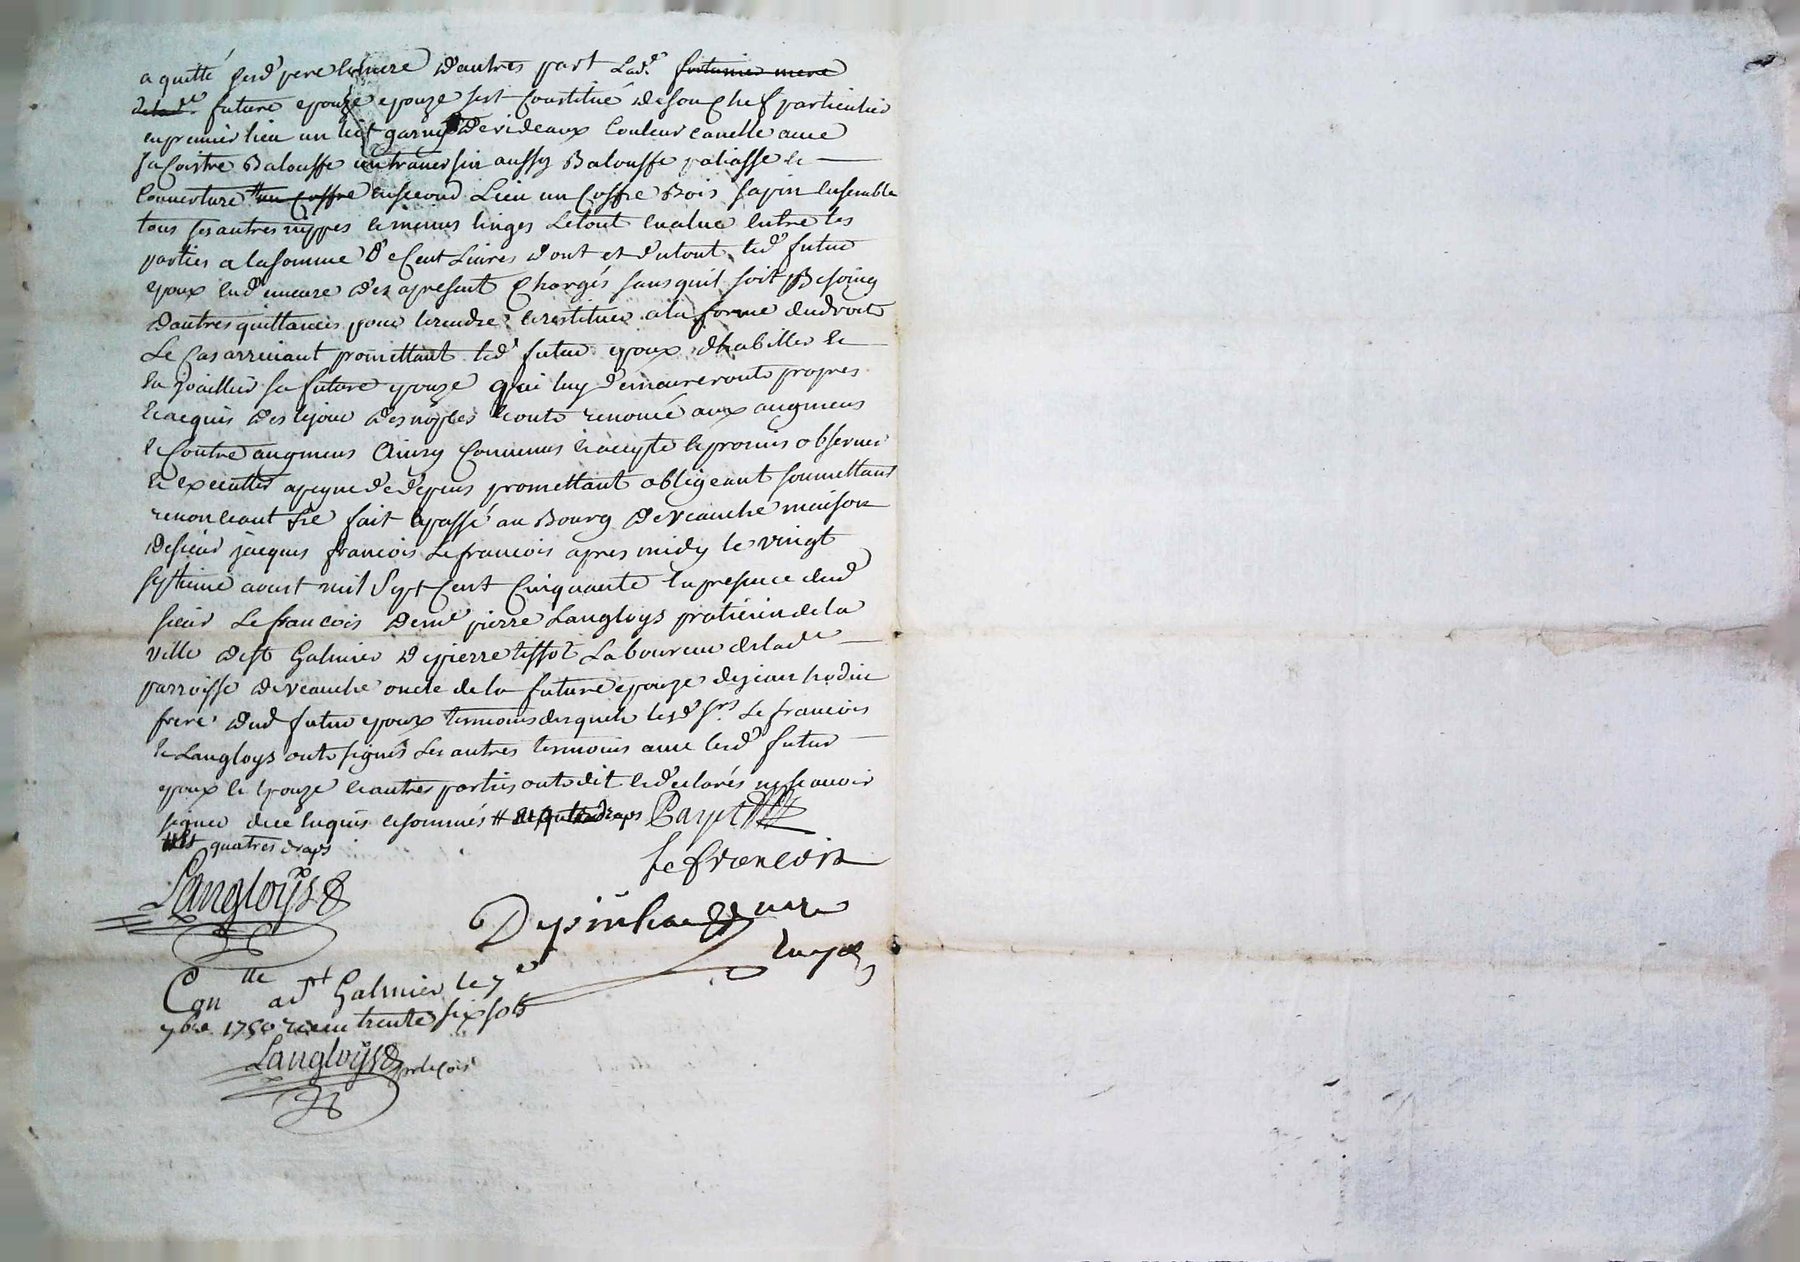 a quitté sesd pere et mere d'autres part Lad.e fortunier mere
de lad.e future epouze epouze sest Constitué de son Chef particulier
en premier lieu un lit garny de rideaux Couleur canelle avec
sa Coitre Balouffe un traversin aussy Balouffe paliasse et
Couverture # un Coffre en second Lieu un Coffre Bois sapin ensemble
tous ses autres nippes et menus linges Le tout evalué entre les
parties a la somme de Cent Livres dont et du tout led futur
epoux en demeure des apresent Chargés sans quil soit Besoing
dautres quittances pour le rendre et restituer a la forme du droit
Le Cas arrivant promettant led futur epoux dhabiller et
en joailler sa future epouze qui luy demeureront propres
et acquis des le jour des nopces et ont renoncé aux augmens
et Contre augmens Ainsy Convenus et accepté et promis observer
et executter a peyne de depens promettant obligeant soumettant
renonceant &c fait et passé au Bourg de Veauche maison
de sieur jacques francois Lefrancois apres midy le vingt
septieme aoust mil Sept Cent Cinquante en presence dud
sieur Lefrancois de me pierre Langloys praticien de la
ville de st Galmier de pierre tissot Laboureur de lad.e
parroisse de veauche oncle de la future epouze de jean
frere dud futur epoux temoins desquels lesd srs Le francois
et Langloys ont signés Les autres temoins avec lesd futur
epoux et epouze et autres parties ont dit et declarés ne scavoir
signer de ce enquis et sommés # et quatre draps Payet
# et quatres draps
Lefrancois
Langloys
Depinhac nore
royal
Con.lle a st Galmier le 7e
7bre 1750 receu trente six sols
Langloys